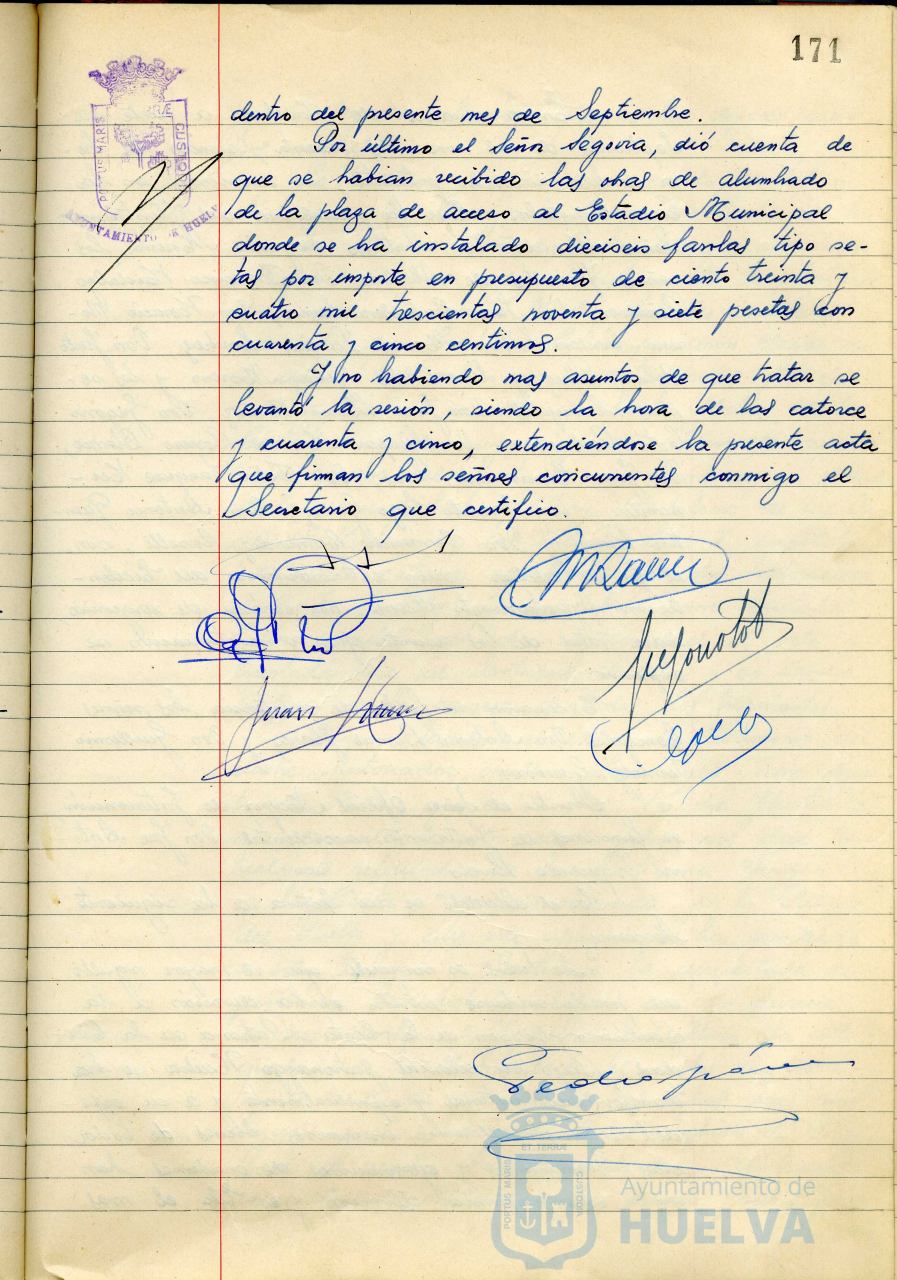 171
PORTUS MARIS
CUSTODIA
AYUNTAMIENTO DE HUELVA
dentro del presente mes de Septiembre.
Por último el Señor Segovia, dió cuenta de
que se habian recibido las obras de alumbrado
de la plaza de acceso al Estadio Municipal
donde se ha instalado dieciseis farolas tipo se-
tas por importe en presupuesto de ciento treinta y
cuatro mil trescientas noventa y siete pesetas con
cuarenta y cinco centimos.
Y no habiendo mas asuntos de que tratar se
levantó la sesión, siendo la hora de las catorce
y cuarenta y cinco, extendiéndose la presente acta
que firman los señores concurrentes conmigo el
Secretario que certifico.
Juan
Pedro
ET TERRAE
PORTUS MARIS
CUSTODIA
Ayuntamiento de
HUELVA